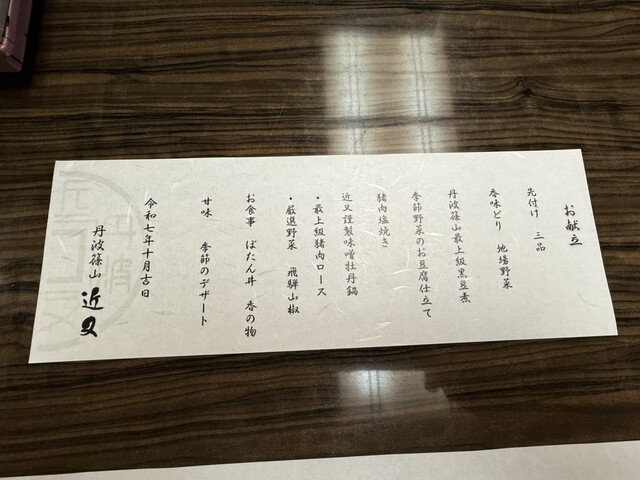 お献立
先付け 三品
香味どり 地場野菜
丹波篠山最上級黒豆煮
季節野菜のお豆腐仕立て
猪肉塩焼き
近又謹製味噌牡丹鍋
・最上級猪肉ロース
・厳選野菜 飛騨山椒
お食事 ぼたん丼 香の物
甘味 季節のデザート
令和七年十月吉日
丹波篠山 近又